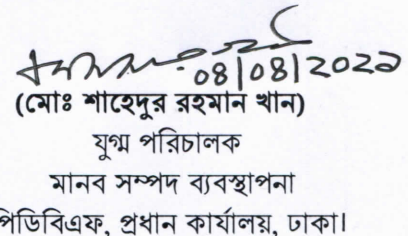 ০৪|০৪|২০২১
(মোঃ শাহেদুর রহমান খান)
যুগ্ম পরিচালক
মানব সম্পদ ব্যবস্থাপনা
পিডিবিএফ, প্রধান কার্যালয়, ঢাকা।